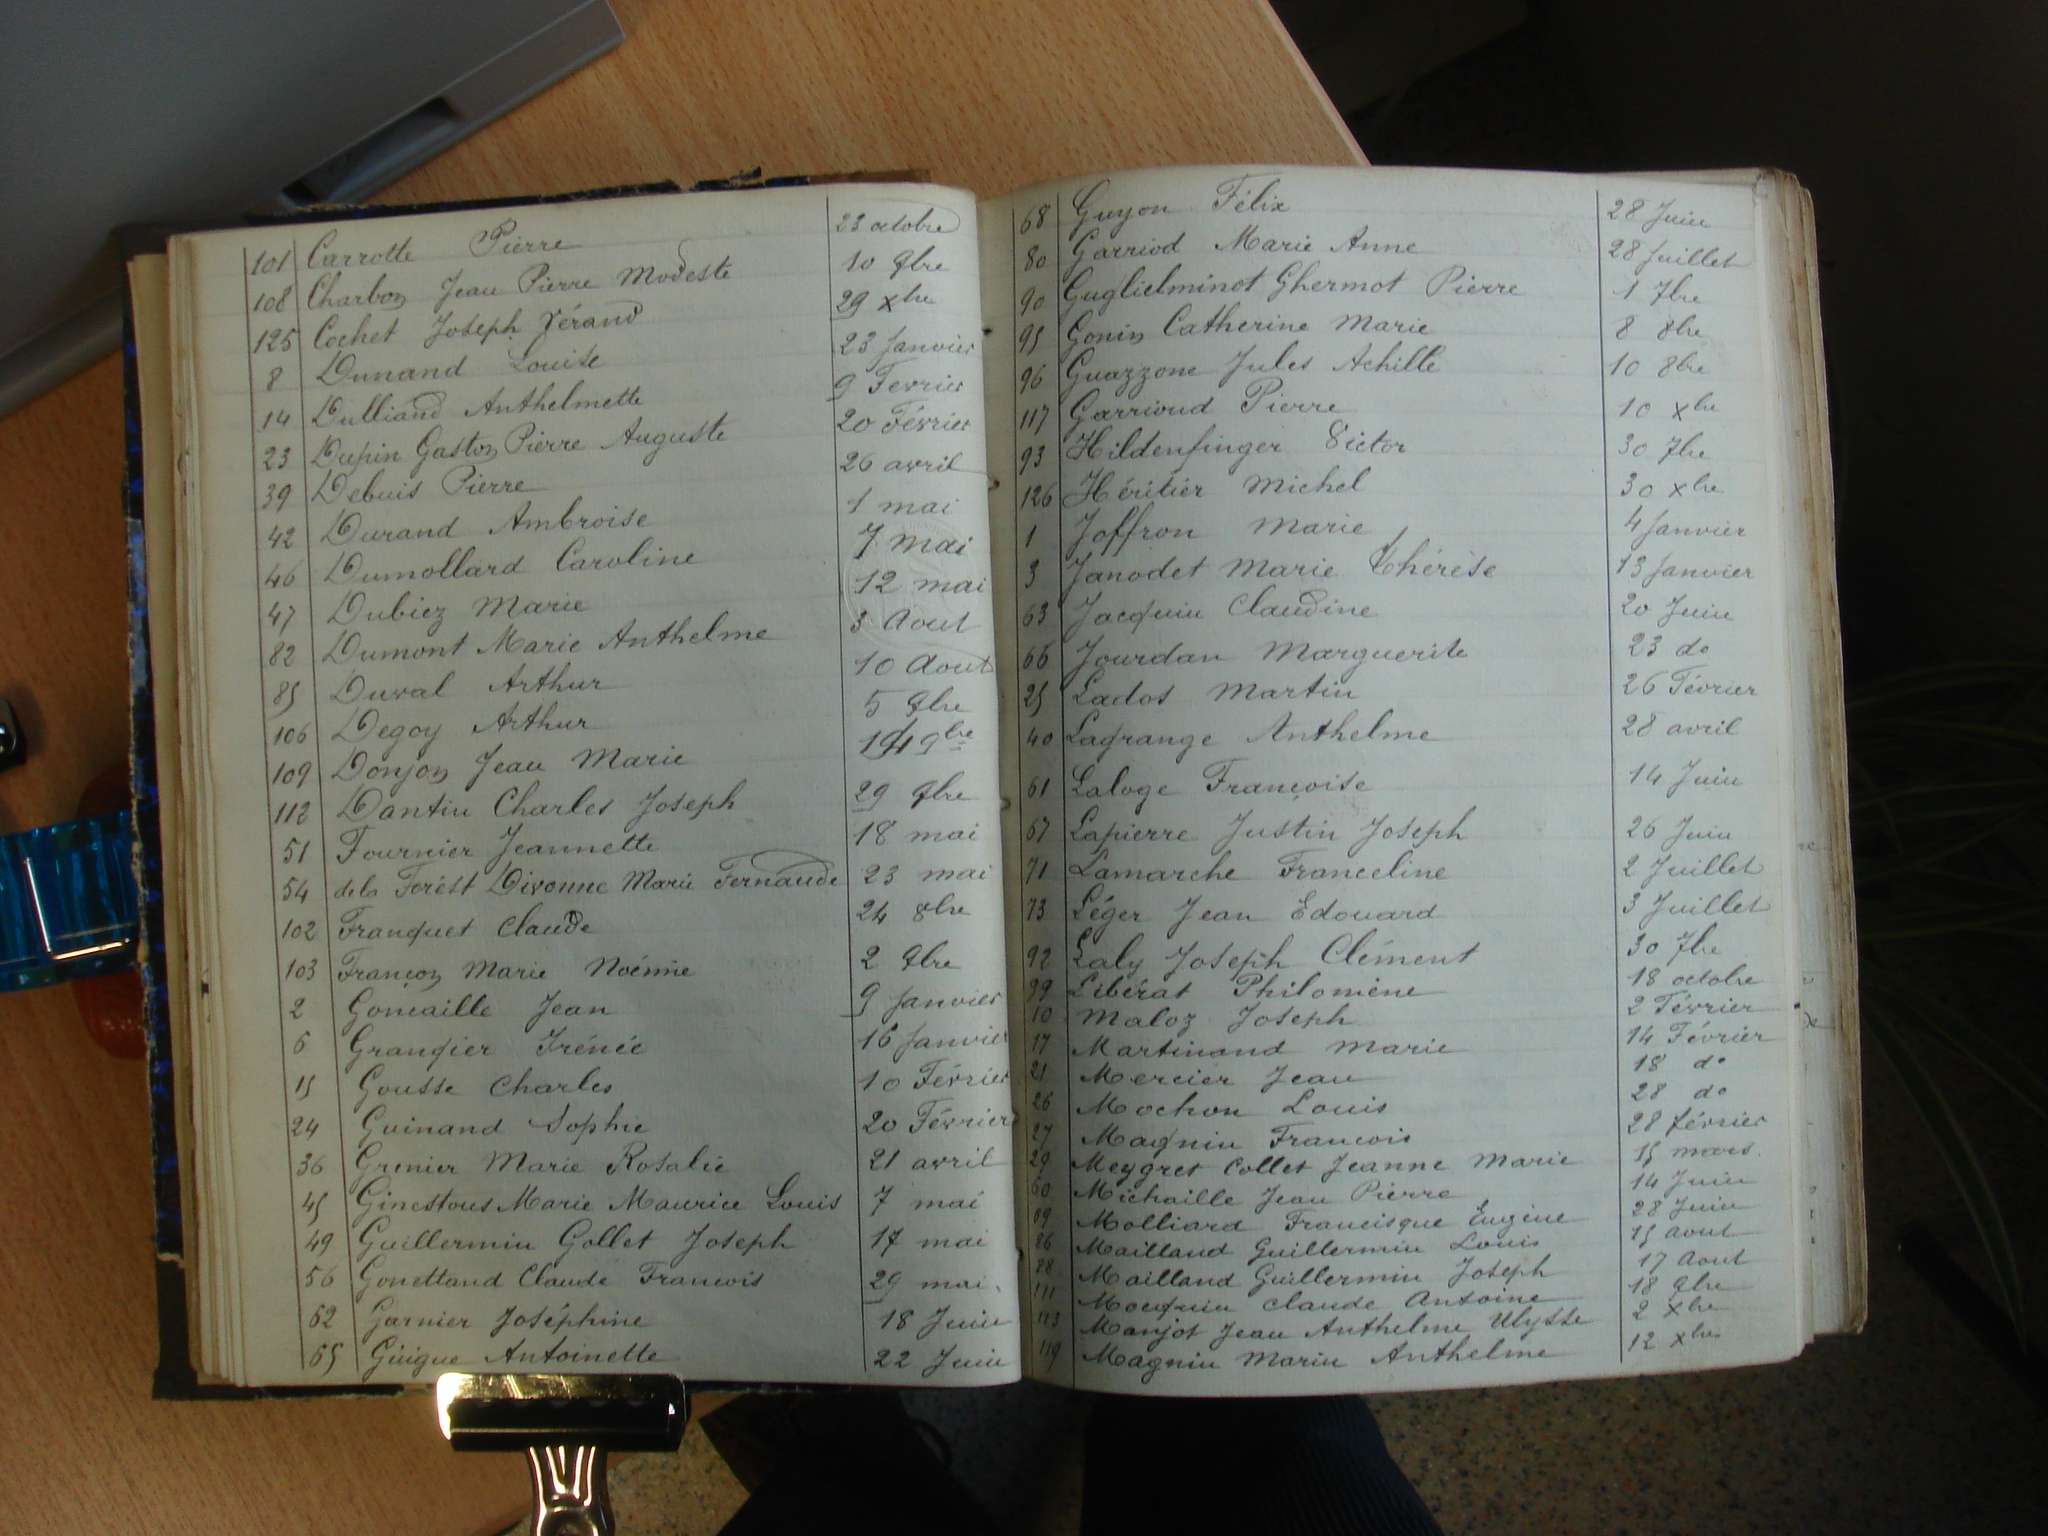 101 Carrotte Pierre 23 octobre
108 Charbon Jean Pierre Modeste 10 9bre
125 Cochet Joseph Vérand 29 xbre
8 Dunand Louise 23 Janvier
14 Dulliand Anthelmette 9 Fevrier
23 Dupin Gaston Pierre Auguste 20 Février
39 Debuis Pierre 26 avril
42 Durand Ambroise 1 mai
46 Dumollard Caroline 7 mai
47 Dubiez Marie 12 mai
82 Dumont Marie Anthelme 3 Aout
85 Duval Arthur 10 Aout
106 Degoy Arthur 5 9bre
109 Donjon Jean Marie 9bre
112 Dantin Charles Joseph 29 9bre
51 Fournier Jeannette 18 mai
54 de la Forést Divonne Marie Fernande 23 mai
102 Franquet Claude 24 8bre
103 Françon Marie Noémie 2 9bre
2 Goncaille Jean 9 Janvier
6 Grangier Irénée 16 Janvier
15 Gousse Charles 10 Février
24 Guinand Sophie 20 Février
36 Grenier Marie Rosalie 21 avril
45 Ginestous Marie Maurice Louis 7 mai
49 Guillermin Gollet Joseph 17 mai
56 Gonettand Claude Francois 29 mai.
62 Garnier Joséphine 18 Juin
65 Guigue Antoinette 22 Juin
68 Guyon Félix 28 Juin
80 Garriod Marie Anne 28 Juillet
90 Guglielminot Ghermot Pierre 1 7bre
95 Gonin Catherine Marie 8 8bre
96 Guazzone Jules Achille 10 8bre
117 Garrioud Pierre 10 xbre
93 Hildenfinger Victor 30 7bre
126 Héritier Michel 30 xbre
1 Joffron Marie 4 Janvier
3 Janodet Marie Thérèse 13 Janvier
63 Jacquin Claudine 20 Juin
66 Jourdan Marguerite 23 do
25 Lados Martin 26 Février
40 Lagrange Anthelme 28 avril
61 Laloge Françoise 14 Juin
67 Lapierre Justin Joseph 26 Juin
71 Lamarche Franceline 2 Juillet
73 Léger Jean Edouard 3 Juillet
92 Laly Joseph Clément 30 7bre
99 Libérat Philomène 18 octobre
10 Maloz Joseph 2 Février
17 Martinand Marie 14 Février
21 Mercier Jean 18 do
26 Mochon Louis 28 do
27 Magnin Francois 28 février
29 Meygret Collet Jeanne Marie 15 mars.
60 Michaille Jean Pierre 14 Juin
69 Molliard Francisque Eugène 28 Juin
86 Mailland Guillermin Louis 15 aout
88 Mailland Guillermin Joseph 17 Aout
111 Mocquin Claude Antoine 18 9bre
113 Manjot Jean Anthelme Ulysse 2 xbre
119 Magnin Marin Anthelme 12 xbre